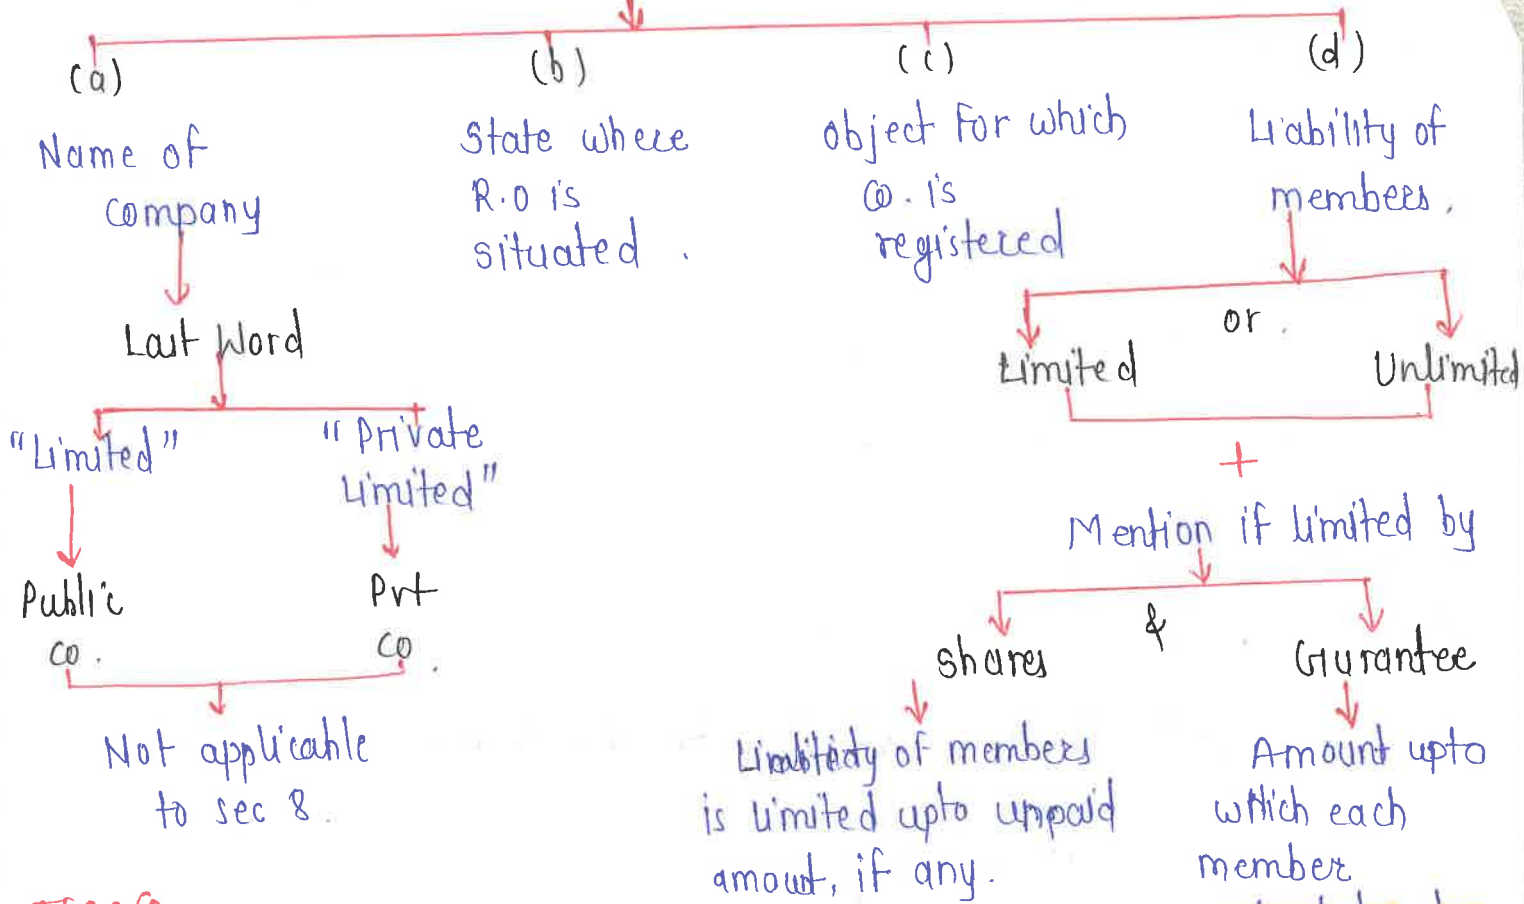 (a)
Name of
company
Last Word
"Limited"
Public
co.
"Private
Limited"
Pvt
co.
Not applicable
to sec 8.
(b)
State where
R.O is
situated.
(c)
object for which
co. is
registered
(d)
Liability of
members.
Limited
or.
Unlimited
+
Mention if limited by
shares
&
Gurantee
of members
is limited upto unpaid
amout, if any.
Amount upto
which each
member